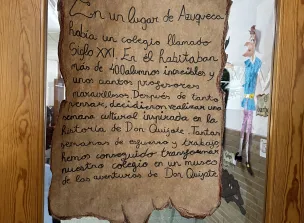 En un lugar de Azuqueca
había un colegio llamado
Siglo XXI. En él habitaban
más de 400 alumnos increíbles y
unos cuantos profesores
maravillosos. Después de tanto
pensar, decidieron realizar una
semana cultural inspirada en la
historia de Don Quijote. Tantas
semanas de esfuerzo y trabajo
hemos conseguido transformar
nuestro colegio en un museo
de las aventuras de Don Quijote